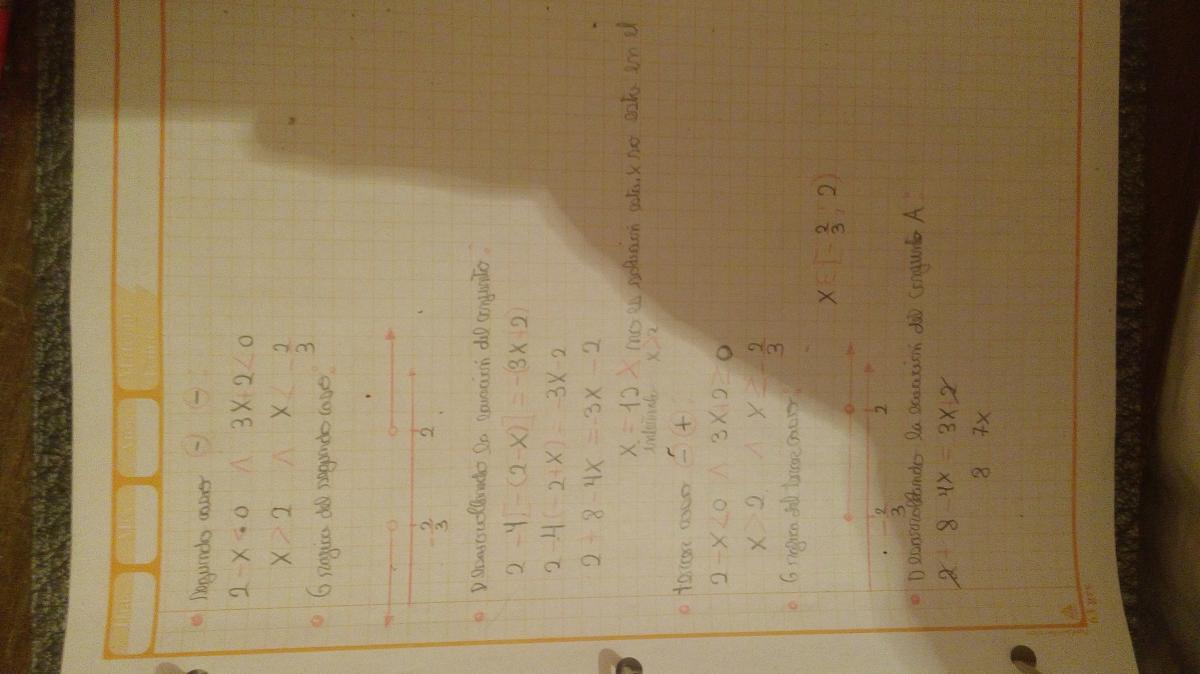 Segundo caso ⊖ ⊖ :
2 - x < 0 ∧ 3x + 2 < 0
x > 2 ∧ x < -2/3
Grafica del segundo caso:
-2/3 2
Desarrollando la ecuación del conjunto:
2 - 4[-(2 - x)] = -(3x + 2)
2 - 4(-2 + x) = -3x - 2
2 + 8 - 4x = -3x - 2
x = 12 x (no es solución esta. x no esta en el
intervalo x > 2
tercer caso ⊖ ⊕
2 - x < 0 ∧ 3x + 2 ≥ 0
x > 2 ∧ x ≥ -2/3
Grafica del tercer caso:
x ∈ [-2/3, 2)
-2/3 2
Desarrollando la ecuación del conjunto A:
2 + 8 - 4x = 3x + 2
8 7x